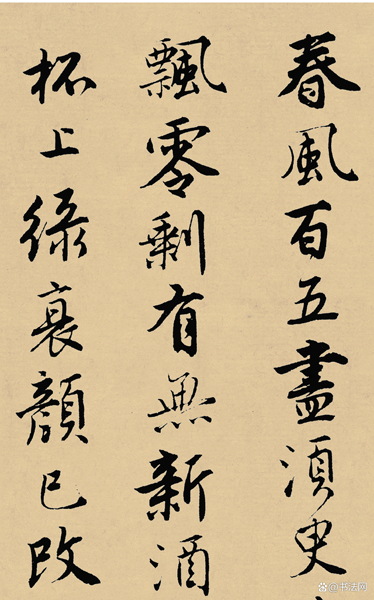 春風百五盡須臾
飄零剩有無新酒
杯上綠衰顏已改